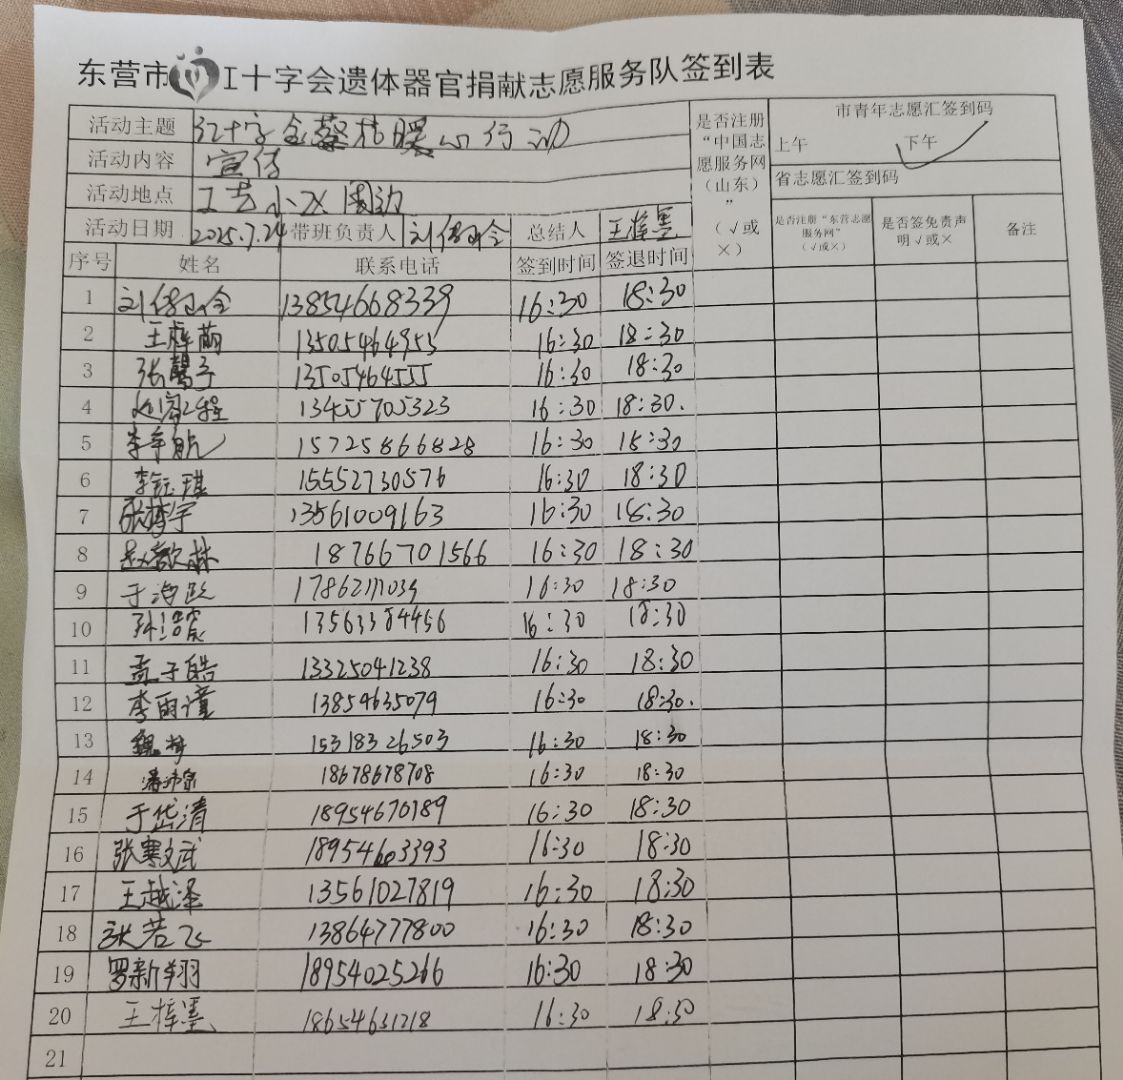 东营市红十字会遗体器官捐献志愿服务队签到表
活动主题 红十字会 暖心行动 是否注册“中国志愿服务网（山东）”（√或×） 市青年志愿汇签到码
上午 下午 ✓
活动内容 宣传
省志愿汇签到码
活动地点 工艺小区周边
活动日期 2025.7.24 带班负责人 总结人 王梓墨 是否注册“东营志愿服务网”（√或×） 是否签免责声明√或× 备注
序号 姓名 联系电话 签到时间 签退时间
1 13854668339 16:30 18:30
2 13505464953 16:30 18:30
3 张馨予 13505464555 16:30 18:30
4 13455705323 16:30 18:30.
5 李宇航 15725866828 16:30 18:30
6 李钰琪 15552730576 16:30 18:30
7 张梦宇 13561009163 16:30 18:30
8 赵歆林 18766701566 16:30 18:30
9 17862111039 16:30 18:30
10 16:30 18:30
11 孟子皓 13325041238 16:30 18:30
12 李雨谨 13854635079 16:30 18:30.
13 魏梓 15318326503 16:30 18:30
14 18678678708 16:30 18:30
15 于岱清 18954670189 16:30 18:30
16 张骞文武 18954603393 16:30 18:30
17 王越泽 13561027819 16:30 18:30
18 张若飞 13864777800 16:30 18:30
19 罗新翔 18954025266 16:30 18:30
20 王梓墨 18654631218 16:30 18:30
21